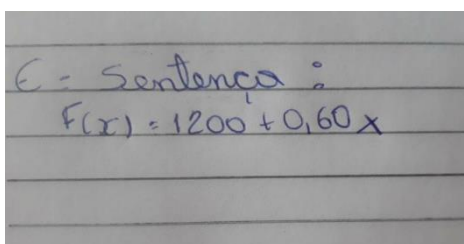 E = Sentença :
F(x) = 1200 + 0,60 x